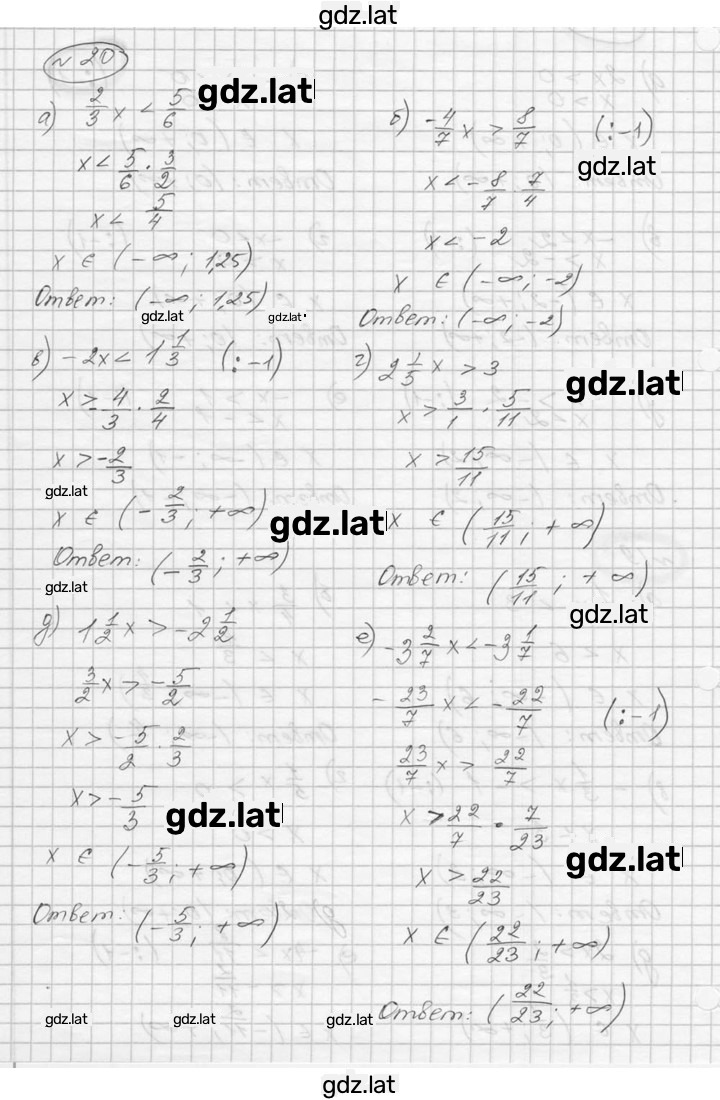 gdz.lat
N 20
а) 2/3 x < 5/6
gdz.lat
x < 5/6 · 3/2
x < 5/4
x ∈ (-∞; 1,25)
Ответ: (-∞; 1,25)
gdz.lat
gdz.lat
б) -4/7 x > 8/7 (:-1)
gdz.lat
x < -8/7 · 7/4
x < -2
x ∈ (-∞; -2)
Ответ: (-∞; -2)
в) -2x < 1 1/3 (:-1)
x > -4/3 · 2/4
x > -2/3
gdz.lat
x ∈ (-2/3; +∞)
gdz.lat
Ответ: (-2/3; +∞)
gdz.lat
г) 2 1/5 x > 3
gdz.lat
x > 3/1 · 5/11
x > 15/11
x ∈ (15/11; +∞)
Ответ: (15/11; +∞)
gdz.lat
д) 1 1/2 x > -2 1/2
3/2 x > -5/2
x > -5/2 · 2/3
x > -5/3
gdz.lat
x ∈ (-5/3; +∞)
Ответ: (-5/3; +∞)
е) -3 2/7 x < -3 1/7
-23/7 x < -22/7 (:-1)
23/7 x > 22/7
x > 22/7 · 7/23
gdz.lat
x > 22/23
x ∈ (22/23; +∞)
Ответ: (22/23; +∞)
gdz.lat
gdz.lat
gdz.lat
gdz.lat